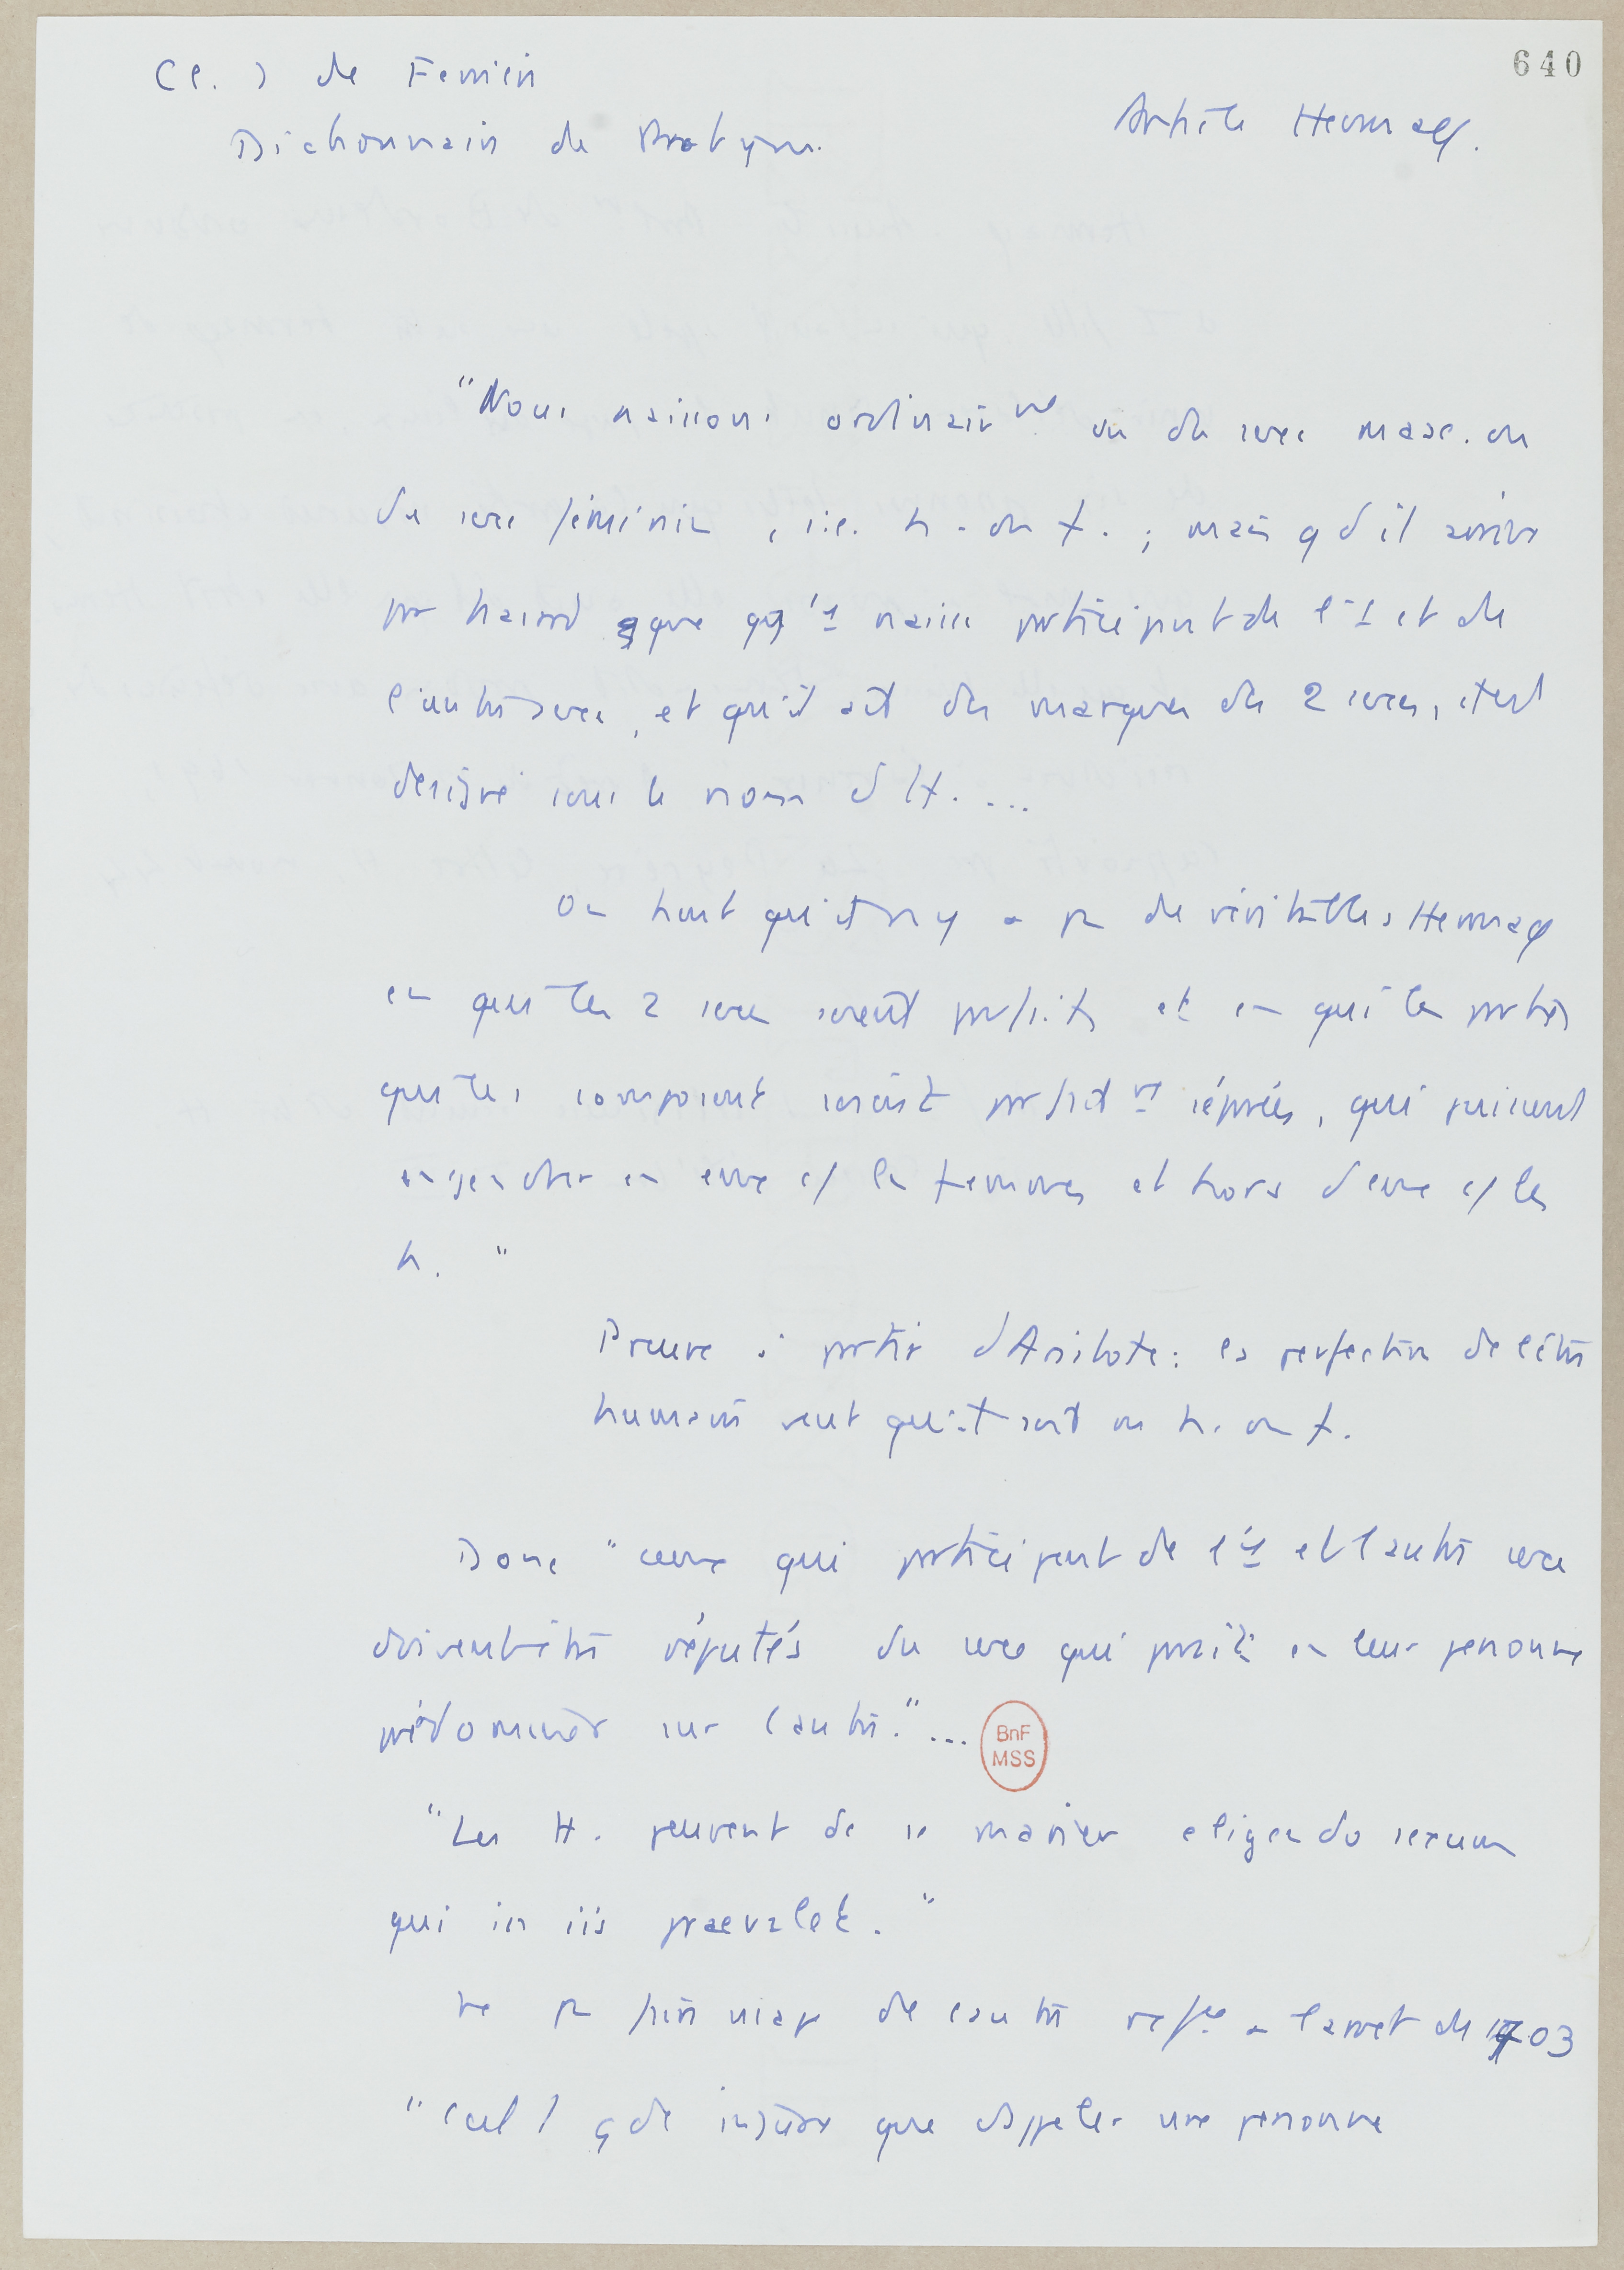 640
(Cl.) de Ferrière
Dictionnaire de Pratique.
Article Hermaph.
"Nous naissons ordinair^nt ou du sexe masc. ou
du sexe féminin, i.e. h. ou f. ; mais qd il arrive
par hasard que qq'1 naisse participant de l'1 et de
l'autre sexe, et qu'il ait des marques des 2 sexes, il est
désigné sous le nom d'H. ...
On tient qu'il n'y a pas de véritables Hermaph
en qui les 2 sexes soient parfaits et en qui les parties
qui les composent soient parfait^nt séparées, qui puissent
engendrer en eux c/ les femmes et hors d'eux c/ les
h. "
Preuve à partir d'Aristote : la perfection de l'être
humain veut qu'il soit ou h. ou f.
Donc "ceux qui participent de l'1 et l'autre sexe
doivent être réputés du sexe qui paraît en leur personne
prédominer sur l'autre." ...
BnF
MSS
"Les H. peuvent de se marier eligendo sexum
qui in iis praevalet. "
ne pas user de l'autre réf^ce à l'arrêt de 1703
"C'est 1 gde injure que d'appeler une personne